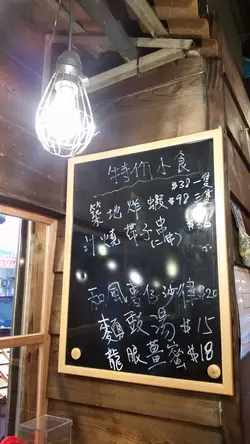 特作小食
築地炸蝦 $38一隻
$98三隻
汁燒帶子串(二串)
和風雪仔沙律 $20
麵豉湯 $15
龍眼薑蜜 $18